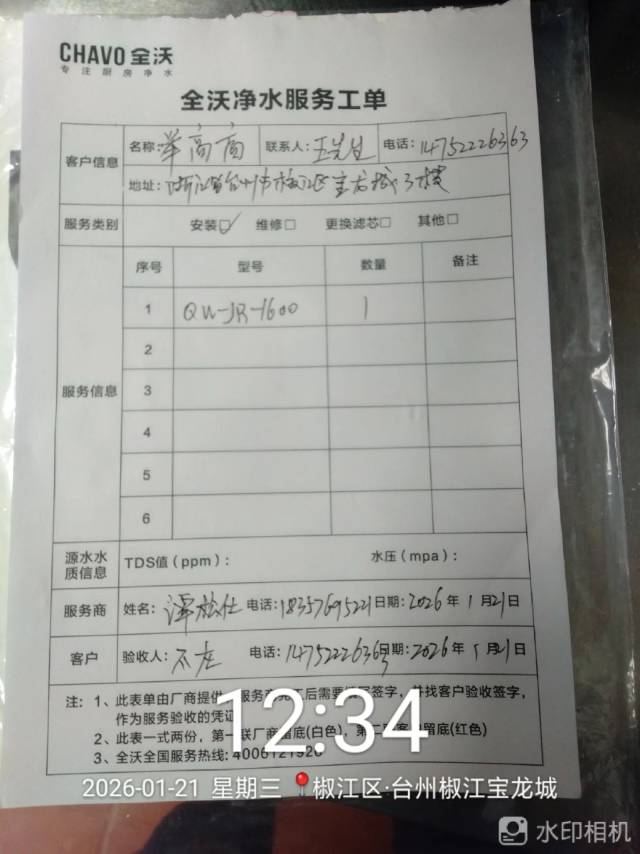 CHAVO 全沃
专注厨房净水
全沃净水服务工单
客户信息
名称: 举高高 联系人: 王先生 电话: 14752226363
地址: 浙江省台州市椒江区宝龙城3楼
服务类别 安装☑ 维修□ 更换滤芯□ 其他□
服务信息
序号 型号 数量 备注
1 QW-JR-1600 1
2
3
4
5
6
源水水质信息 TDS值(ppm): 水压(mpa):
服务商 姓名: 电话: 18357695221 日期: 2026年1月21日
客户 验收人: 不在 电话: 14752226363 日期: 2026年1月21日
注: 1、此表单由厂商提供,服务商完工后需要填写签字,并找客户验收签字,
作为服务验收的凭证
2、此表一式两份,第一联厂商留底(白色),第二联客户留底(红色)
3、全沃全国服务热线: 4006121920
12:34
2026-01-21 星期三 椒江区·台州椒江宝龙城
水印相机